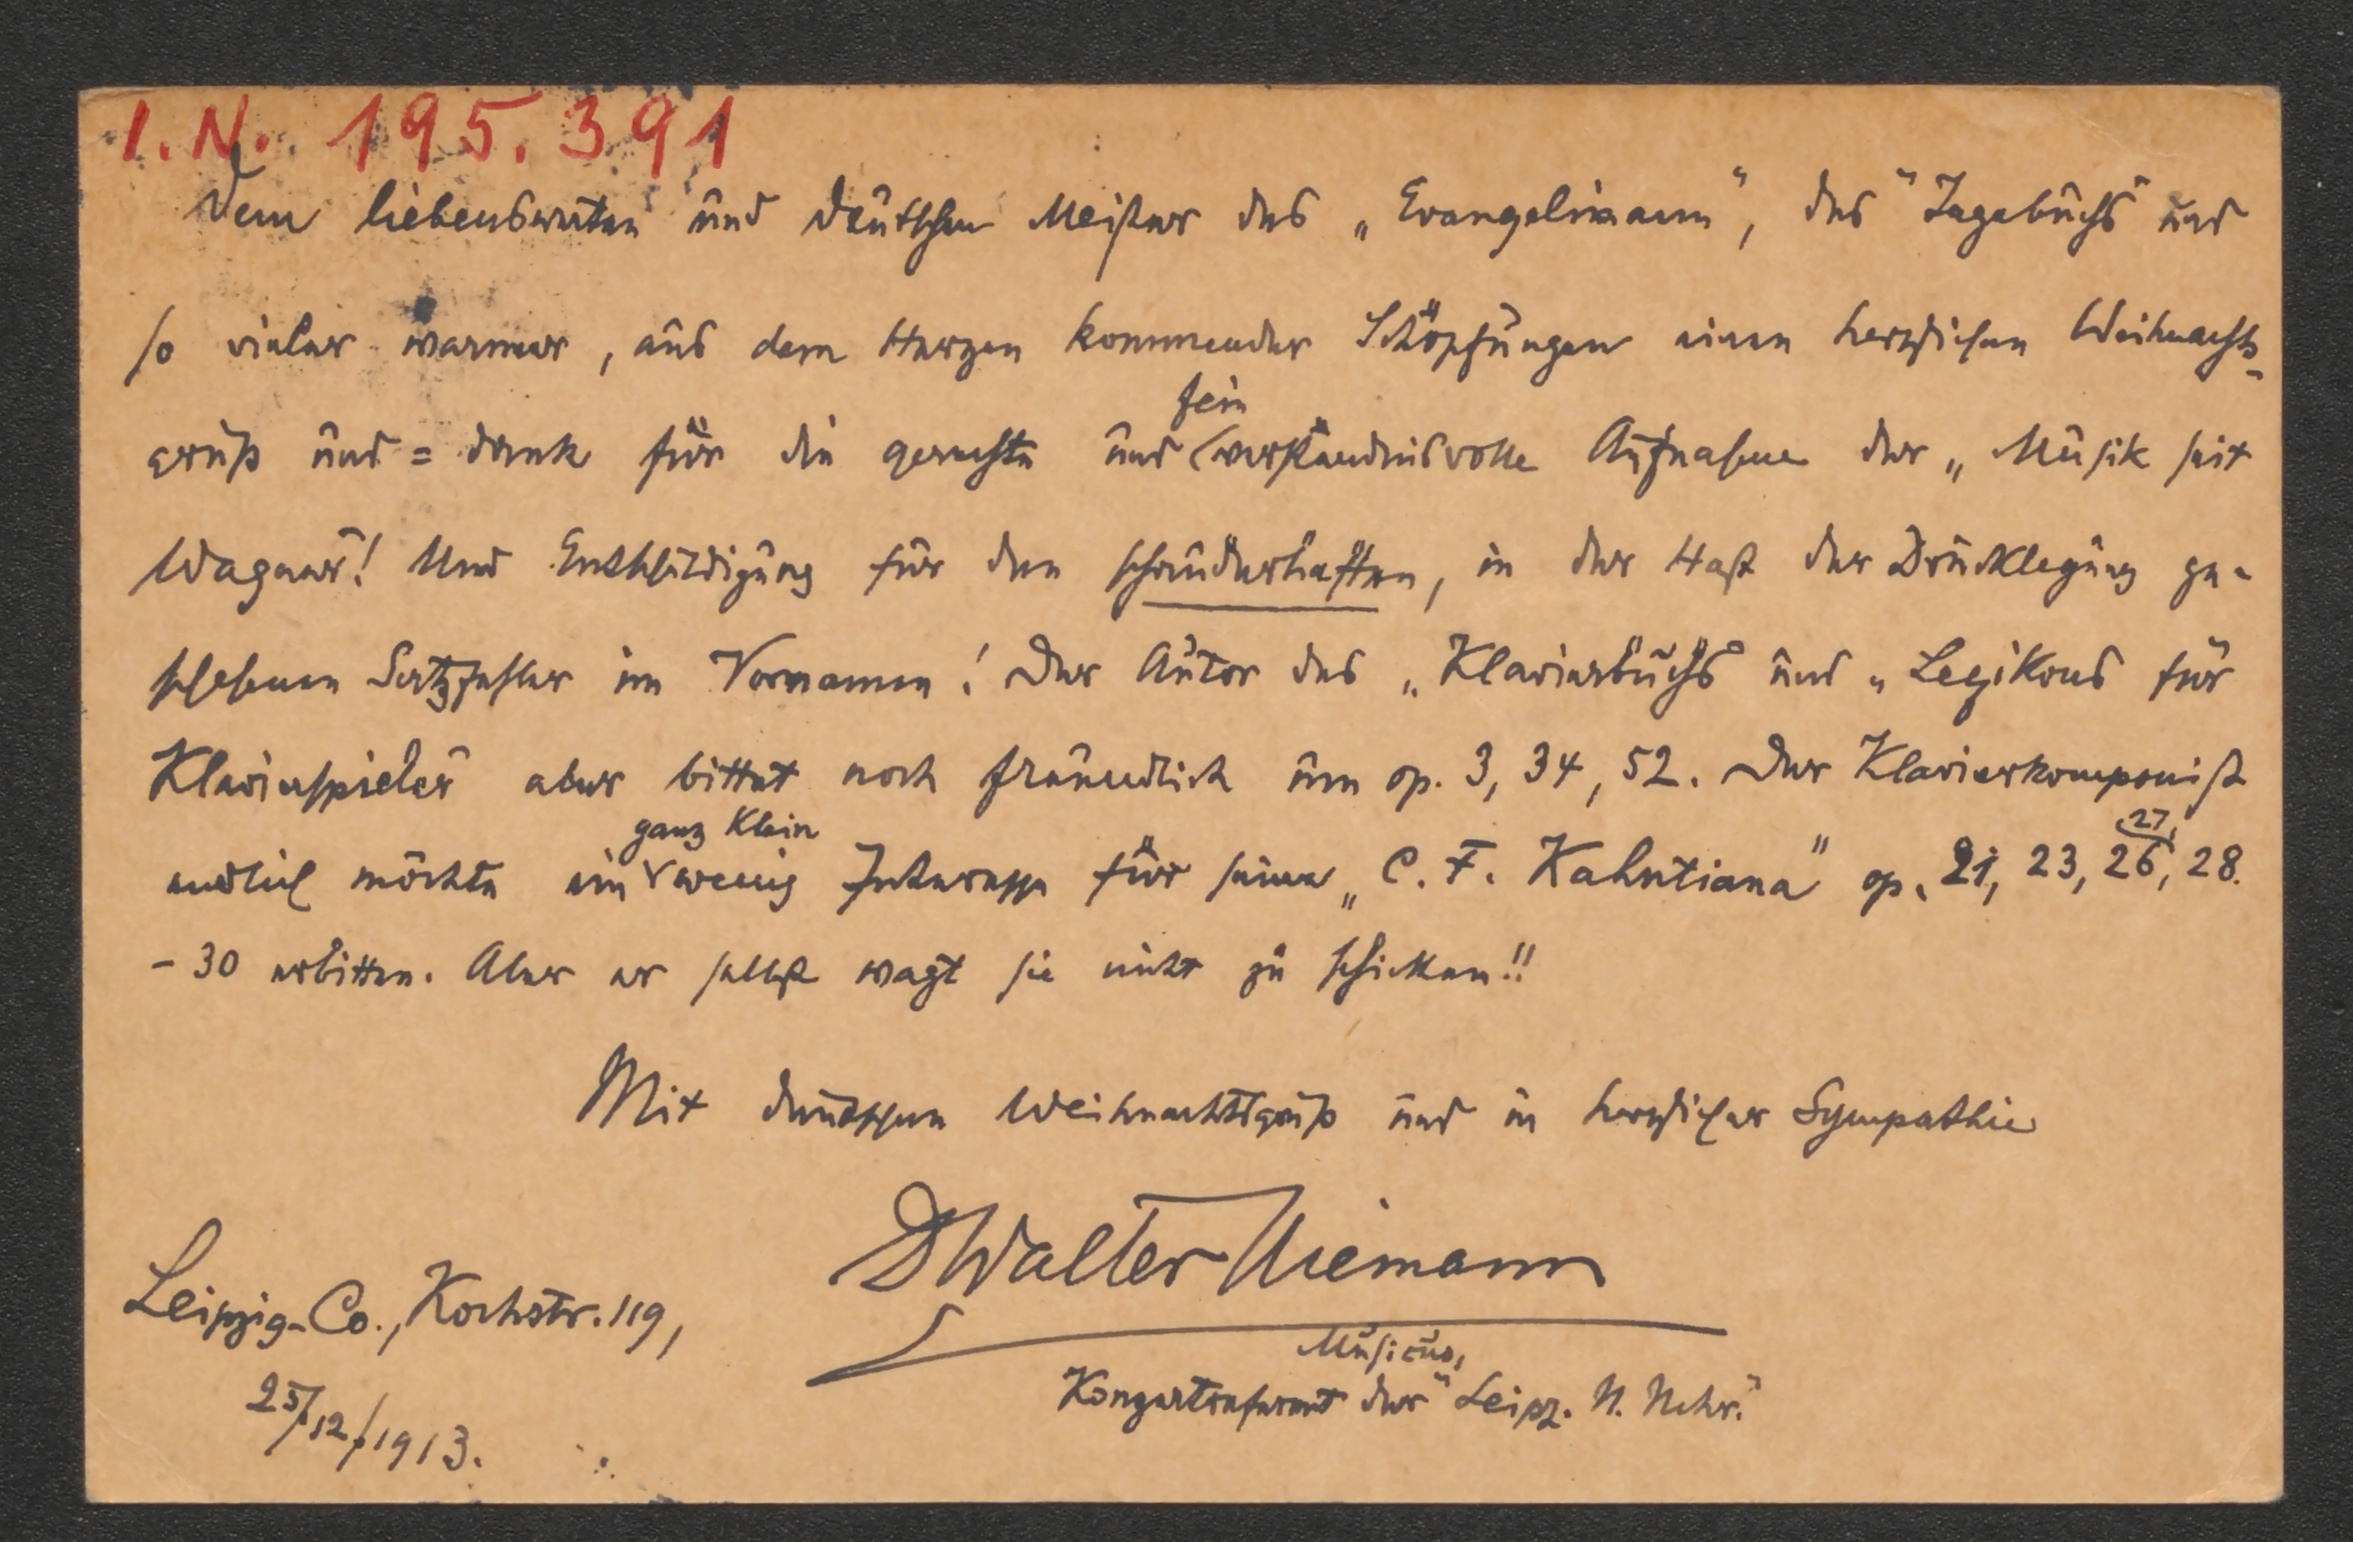 I. N. 195.391
Dem liebenswerten und deutschen Meister des „Evangelimann", des "Tagebuchs" und
so vieler warmer, aus dem Herzen kommender Schöpfungen einen herzlichen Weihnachts-
gruß und = dank für die gerechte und fein verständnisvolle Aufnahme der „Musik seit
Wagner"! Und Entschuldigung für den schauderhaften, in der Hast der Drucklegung ge-
schehenen Satzfehler im Vornamen! Der Autor des „Klavierbuchs" und „Lexikons für
Klavierspieler" aber bittet noch freundlich um op. 3, 34, 52. Der Klavierkomponist
endlich möchte ein ganz klein wenig Interesse für seine „C. F. Kahntiana" op. 21, 23, 26, 27, 28.
- 30 erbitten. Aber er selbst wagt sie nicht zu schicken!!
Mit deutschem Weihnachtsgruß und in herzlicher Sympathie
Dr Walter Niemann
Leipzig-Co., Kochstr. 119,
25/12/1913.
Musicus,
Konzertreferent der "Leipz. N. Nchr."